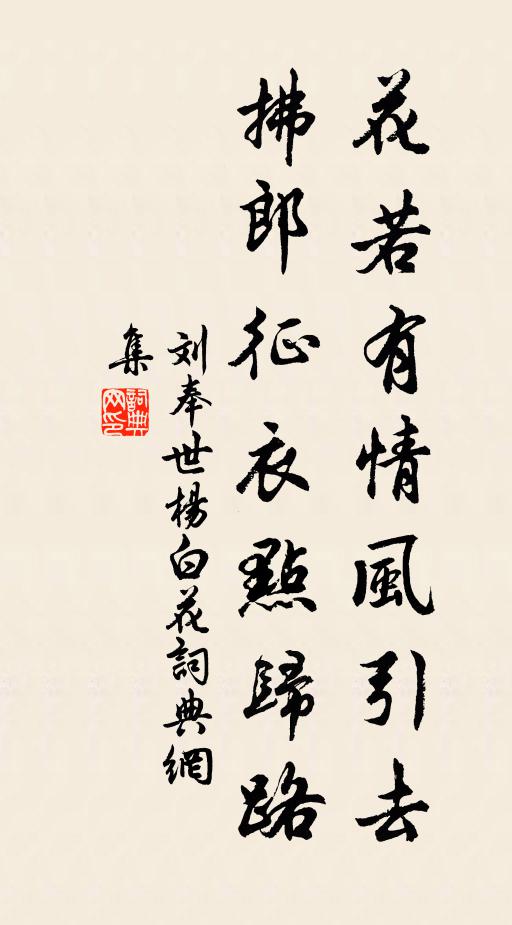 花若有情風引去
拂郎征衣點歸路
刘奉世楊白花詞典網
集
詞典網印